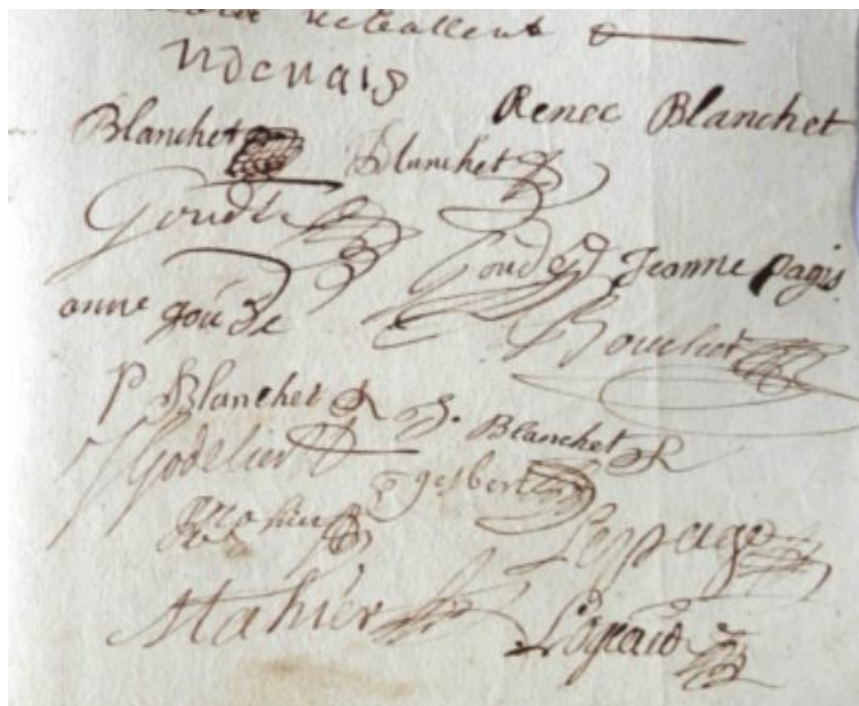 Renee Blanchet
Blanchet Blanchet
Goudé
Goudé Jeanne pagis
anne goude
Boucher
P Blanchet J. Blanchet
Godelier
gesbert
Mahier
Lepage
Mahier